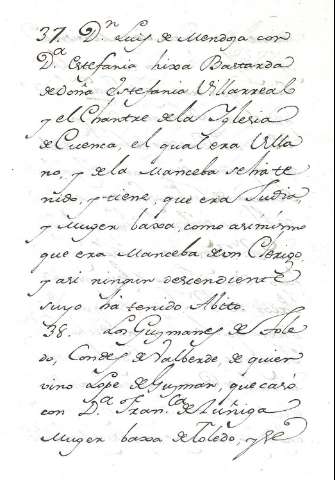 37. D.n Luis de Mendoza con
D.a Estefania hixa Bastarda
de doña Estefania Villarreal
y el Chantre de la Iglesia
de Cuenca, el qual era Villa
no, y de la Manceba se ha te
nido, y tiene, que era Judia
y Muger baxa, como asimismo
que era Manceba de un Clerigo,
y asi ningun descendiente
suyo ha tenido Abito.
38. Los Guzmanes de Tole
do, Condes de Valberde, de quien
vino Lope de Guzman, que casó
con D.a Fran.ca de Zuñiga
Muger baxa de Toledo, y